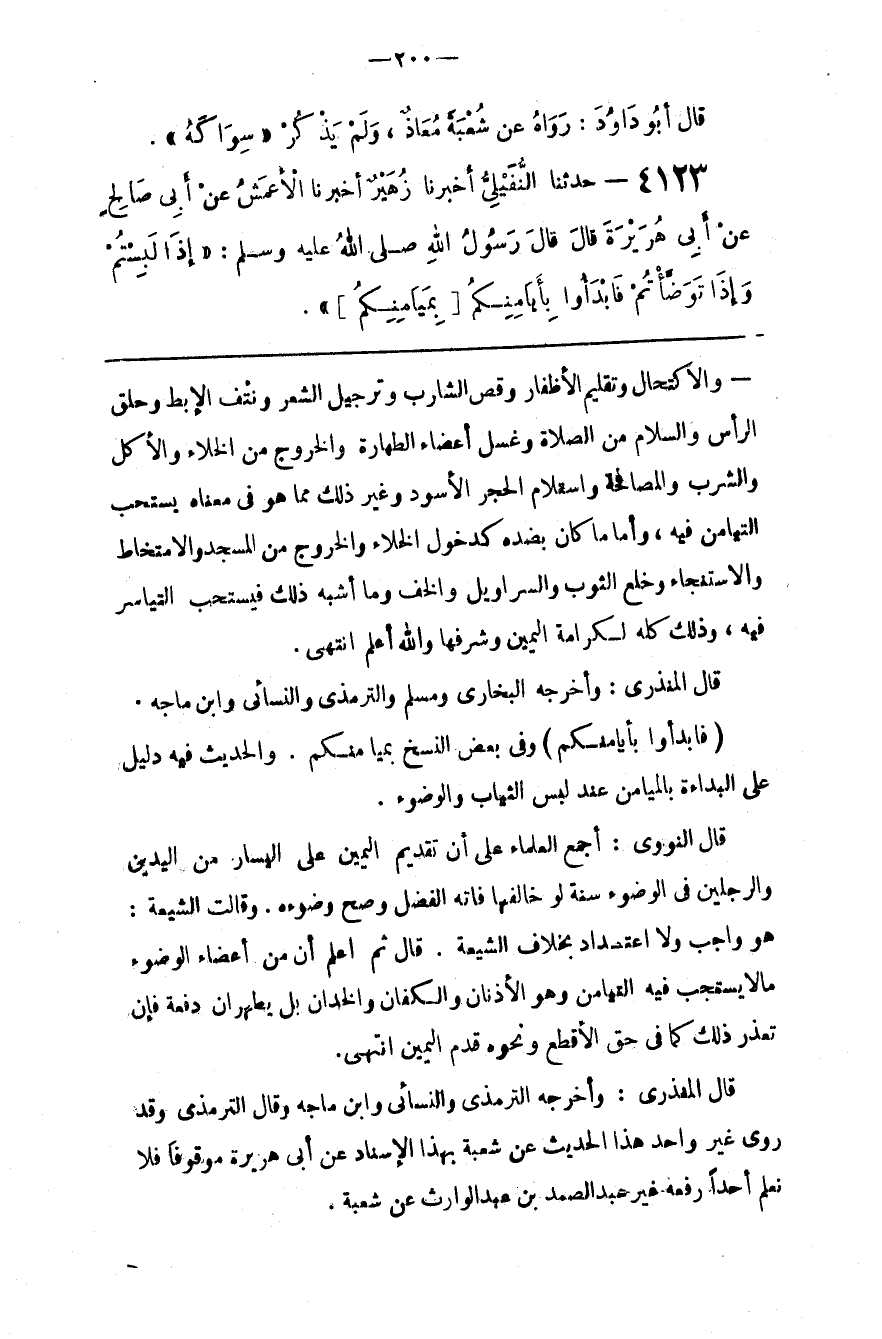 — ٢٠٠ —
قال أبُو دَاوُدَ : رَوَاهُ عن شُعْبَةَ مُعَاذٌ ، وَلَمْ يَذْكُرْ « سِوَاكَهُ » .
٤١٢٣ — حدثنا النُّفَيْلِىُّ أخبرنا زُهَيْرٌ أخبرنا الْأعمَشُ عنْ أبِى صَالِحٍ
عنْ أبِى هُرَيْرَةَ قالَ قالَ رَسُولُ اللهِ صلى اللهُ عليه وسلم : « إذَا لَبِسْتُمْ
وَإذَا تَوَضَّأْتُمْ فَابْدَأُوا بِأَيَامِنِكمُ [ بِمَيَامِنِكمُ ] » .
— والاكتحال وتقليم الأظفار وقص الشارب وترجيل الشعر ونتْف الإبط وحلق
الرأس والسلام من الصلاة وغسل أعضاء الطهارة والخروج من الخلاء والأكل
والشرب والمصافحة واستلام الحجر الأسود وغير ذلك مما هو فى معناه يستحب
التيامن فيه ، وأما ما كان بضده كدخول الخلاء والخروج من المسجد والامتخاط
والاستنجاء وخلع الثوب والسراويل والخف وما أشبه ذلك فيستحب التياسر
فيه ، وذلك كله لكرامة اليمين وشرفها والله أعلم انتهى .
قال المنذرى : وأخرجه البخارى ومسلم والترمذى والنسائى وابن ماجه .
( فابدأوا بأيامنكم ) وفى بعض النسخ بميامنكم . والحديث فيه دليل
على البداءة بالميامن عند لبس الثياب والوضوء .
قال النووى : أجمع العلماء على أن تقديم اليمين على اليسار من اليدين
والرجلين فى الوضوء سنة لو خالفها فاته الفضل وصح وضوءه . وقالت الشيعة :
هو واجب ولا اعتداد بخلاف الشيعة . قال ثم اعلم أن من أعضاء الوضوء
مالا يستحب فيه التيامن وهو الأذنان والكفان والخدان بل يطهران دفعة فإن
تعذر ذلك كما فى حق الأقطع ونحوه قدم اليمين انتهى.
قال المنذرى : وأخرجه الترمذى والنسائى وابن ماجه وقال الترمذى وقد
روى غير واحد هذا الحديث عن شعبة بهذا الإسناد عن أبى هريرة موقوفاً فلا
نعلم أحداً رفعه غير عبدالصمد بن عبدالوارث عن شعبة .